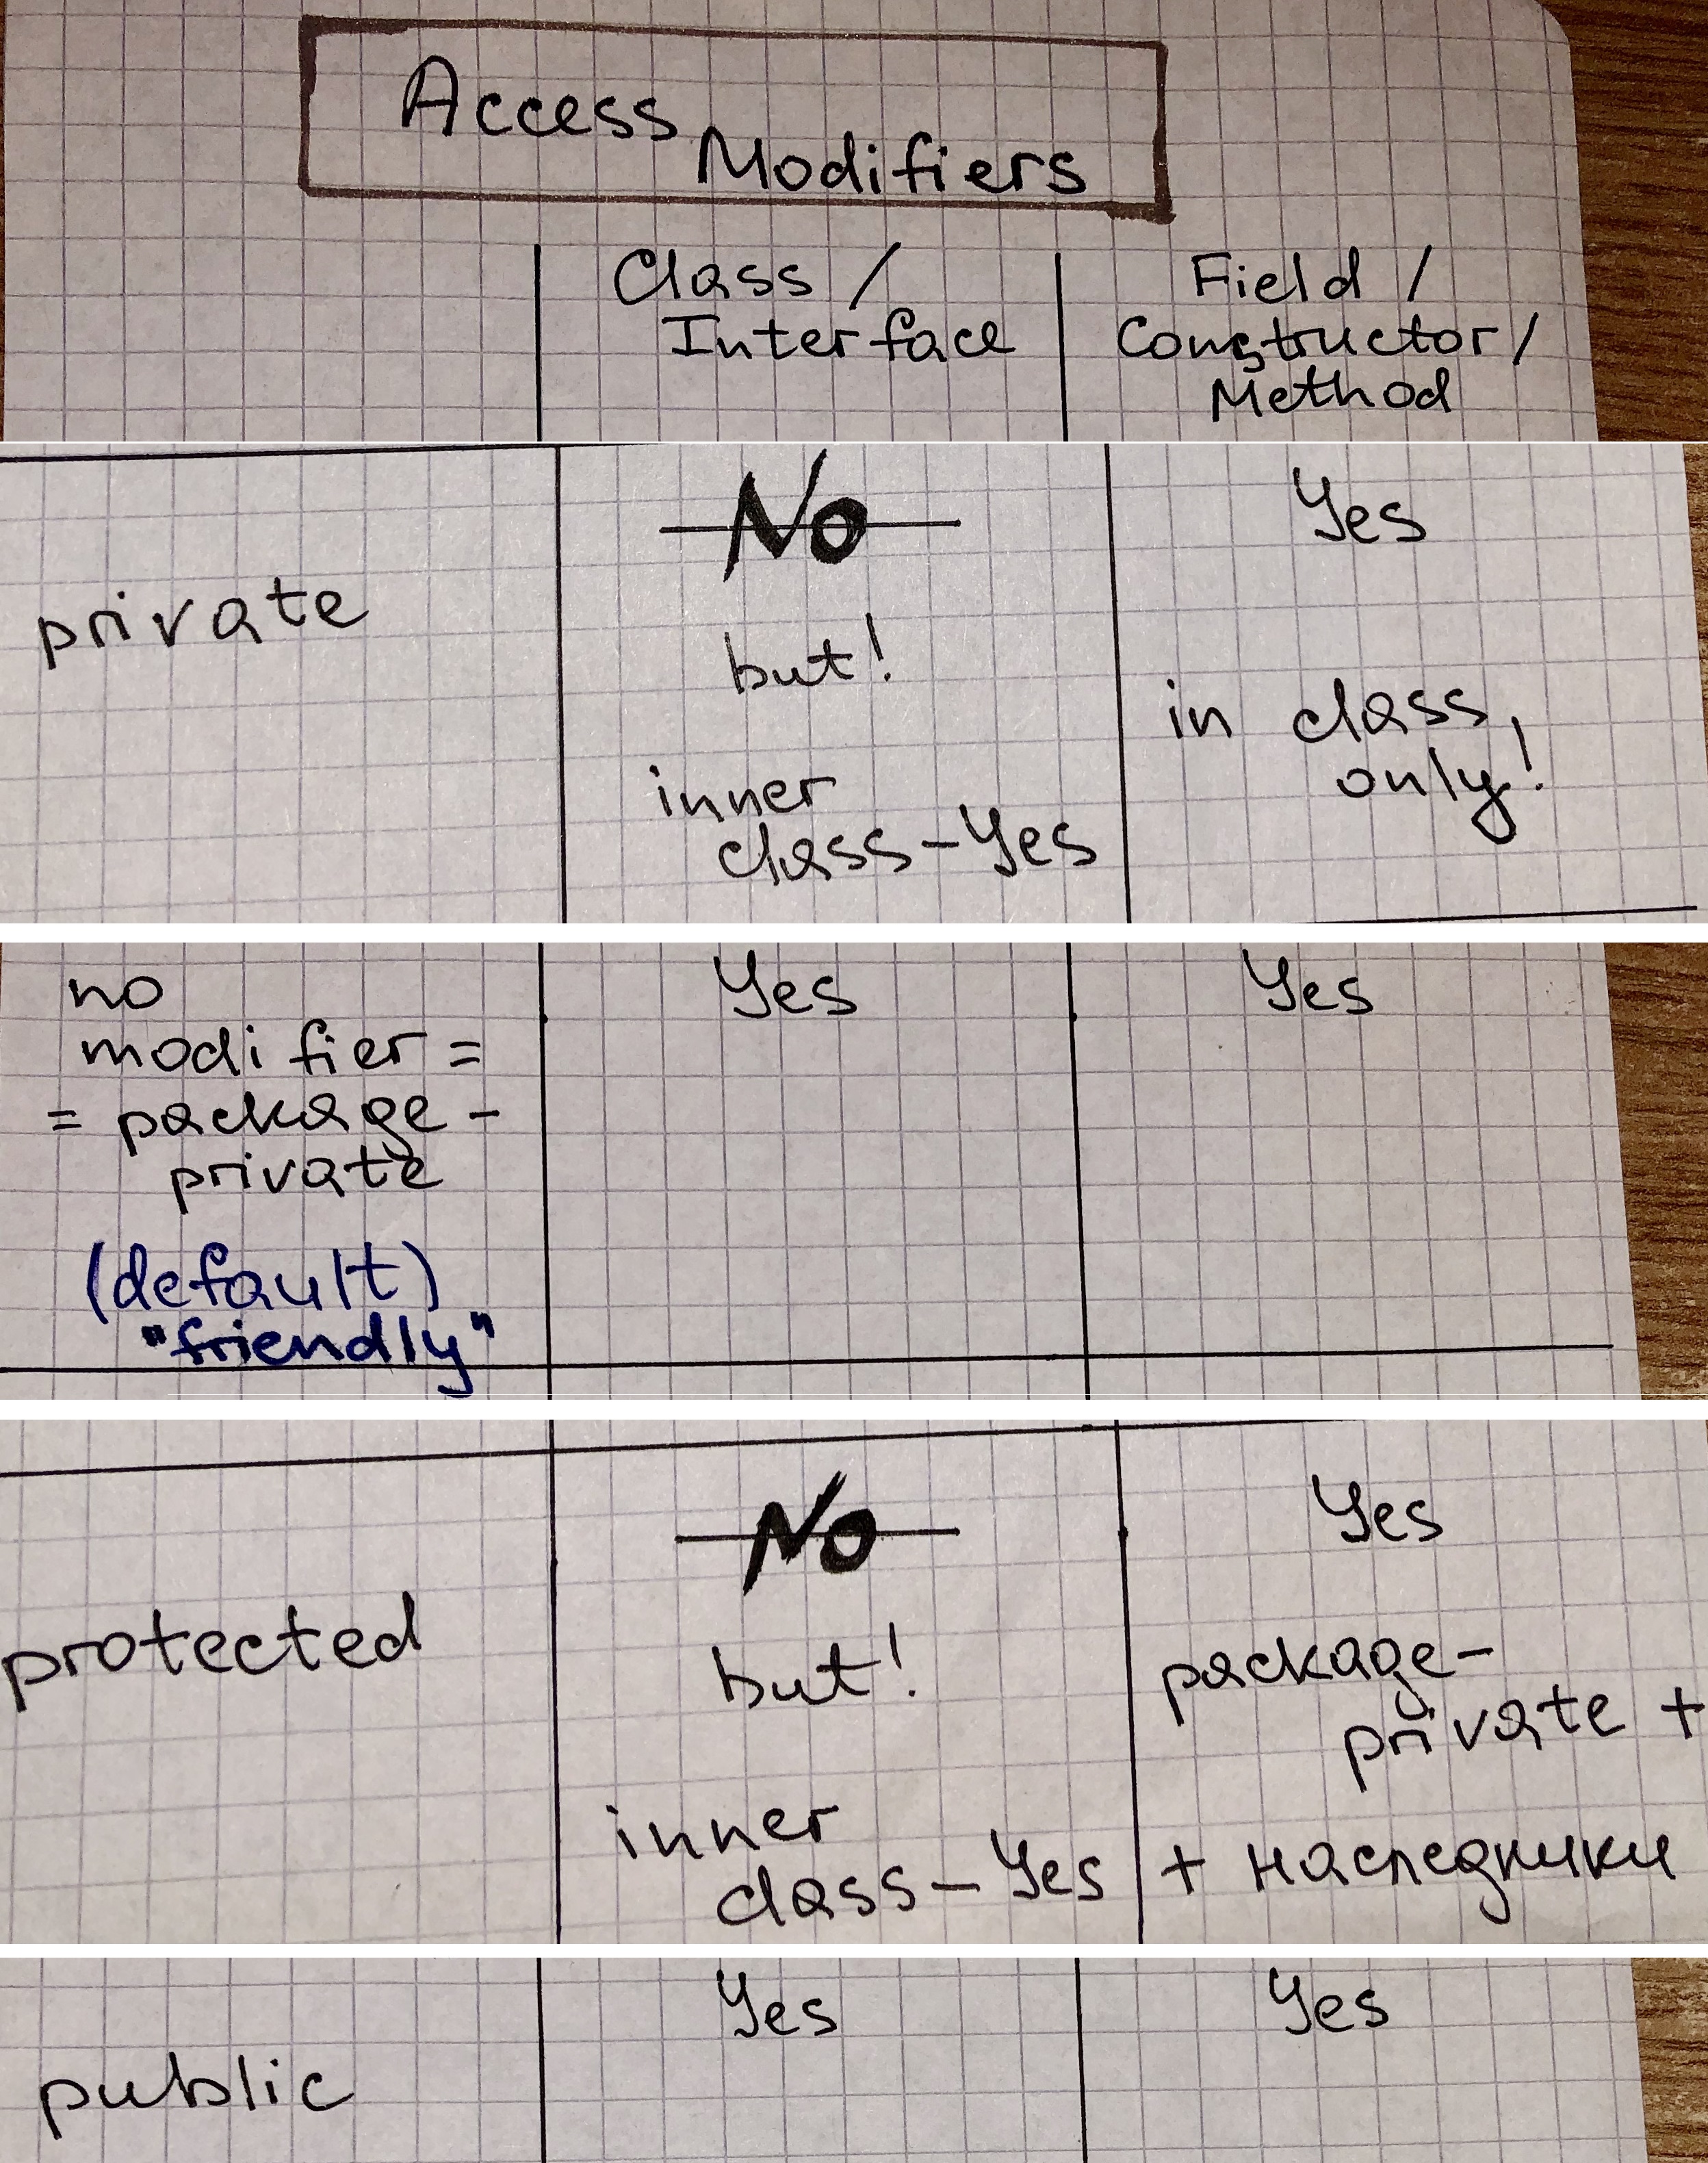 Access
Modifiers
Class /
Interface
Field /
Constructor/
Method
private
No
but!
inner
class-Yes
Yes
in class,
only!
no
modifier =
= package-
private
(default)
"friendly"
Yes
Yes
protected
No
but!
inner
class-Yes
Yes
package-
private +
+ наследники
public
Yes
Yes